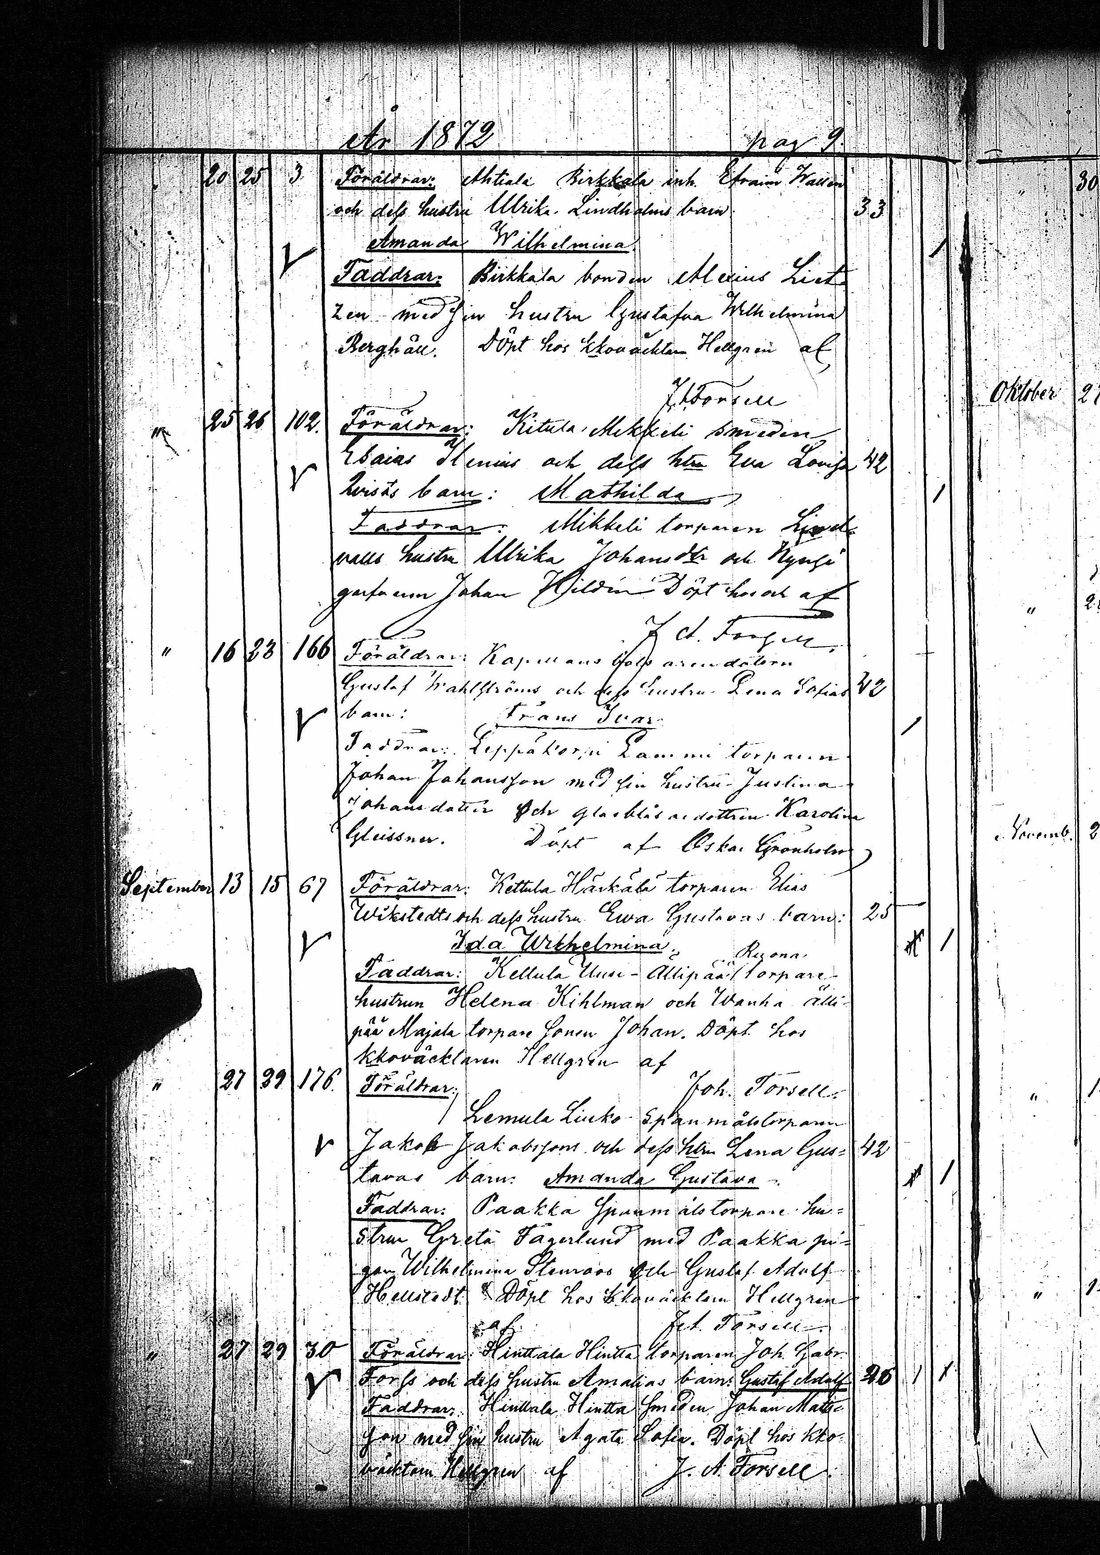 År 1872 pag 9.
20 25 3 Föräldrar: Ahtiala Birkkala inh. Efraim Wallen
och dess hustru Ulrika Lindholms barn 33
Amanda Wilhelmina. 1
Faddrar: Birkkala bonden Alexius Liet-
zen med sin hustru Gustafva Wilhelmina
Berghäll. Döpt hos kkoväcktarn Hellgren af
J.A. Forsell
" 25 26 102. Föräldrar: Kitula Mikkeli smeden
Esaias Ilenius och dess htru Eva Lovisa 42
Qvists barn: Mathilda 1
Faddrar: Mikkeli torparen
valls hustru Ulrika Johansdtr och
Johan Hildén Döpt hos och af
J. A. Forsell.
" 16 23 166 Föräldrar: Kapellans bols arendatorn
Gustaf Wahlströms och dess hustru Lena Sofias 42
barn: Frans Ivar 1
Faddrar: Leppäkorpi Lammi torparen
Johan Johansson med sin hustru Justina
Johansdotter och glasblåsaredottren Karolina
Gleissner. Döpt af Oskar Grönholm
September 13 15 67 Föräldrar: Kettula Härkälä torparen Elias
Wikstedts och dess hustru Ewa Gustavas barn: 25
Ida Wilhelmina. 1
Faddrar: Kettula Uusi-Ällipää torpare-
hustrun Helena Kihlman och Wanha älli-
pää Majala torpare sonen Johan. Döpt hos
kkoväcktaren Hellgren af
" 27 29 176. Föräldrar: Joh. Forsell.
Lemula Liuko Spanmålstorparen
Jakob Jakobssons och dess htru Lena Gus= 42
tavas barn: Amanda Gustava 1
Faddrar: Paakka Spanmålstorpare hu=
strun Greta Fagerlund med Paakka pi=
gan Wilhelmina Stenroos och Gustaf Adolf
Hellstedt Döpt hos kkoväcktarn Hellgren
af J.A. Forsell
" 27 29 30 Föräldrar: Hinttala Hintta torparen Joh. Gabr.
Forss och dess hustru Amalias barn: Gustaf Adolf 26 1 1
Faddrar: Hinttala Hintta smeden Johan Matts-
son med sin hustru Agata Sofia. Döpt hos kko-
väcktarn Hellgren af J. A. Forsell.
30
Oktober
"
Novemb.
"
"